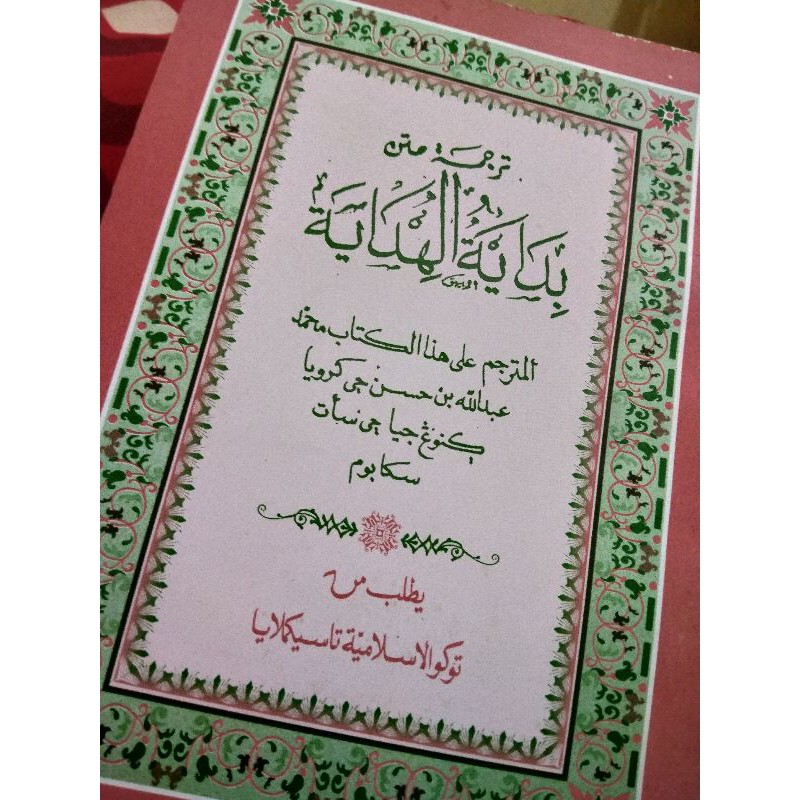 ترجمة متن
بِدَايَةُ الْهِدَايَة
المترجم على هذا الكتاب محمد
عبدالله بن حسن جى كرويا
كنوڠ جيا جى سأت
سكابوم
يطلب من
توكو الاسلامية تاسيكملايا